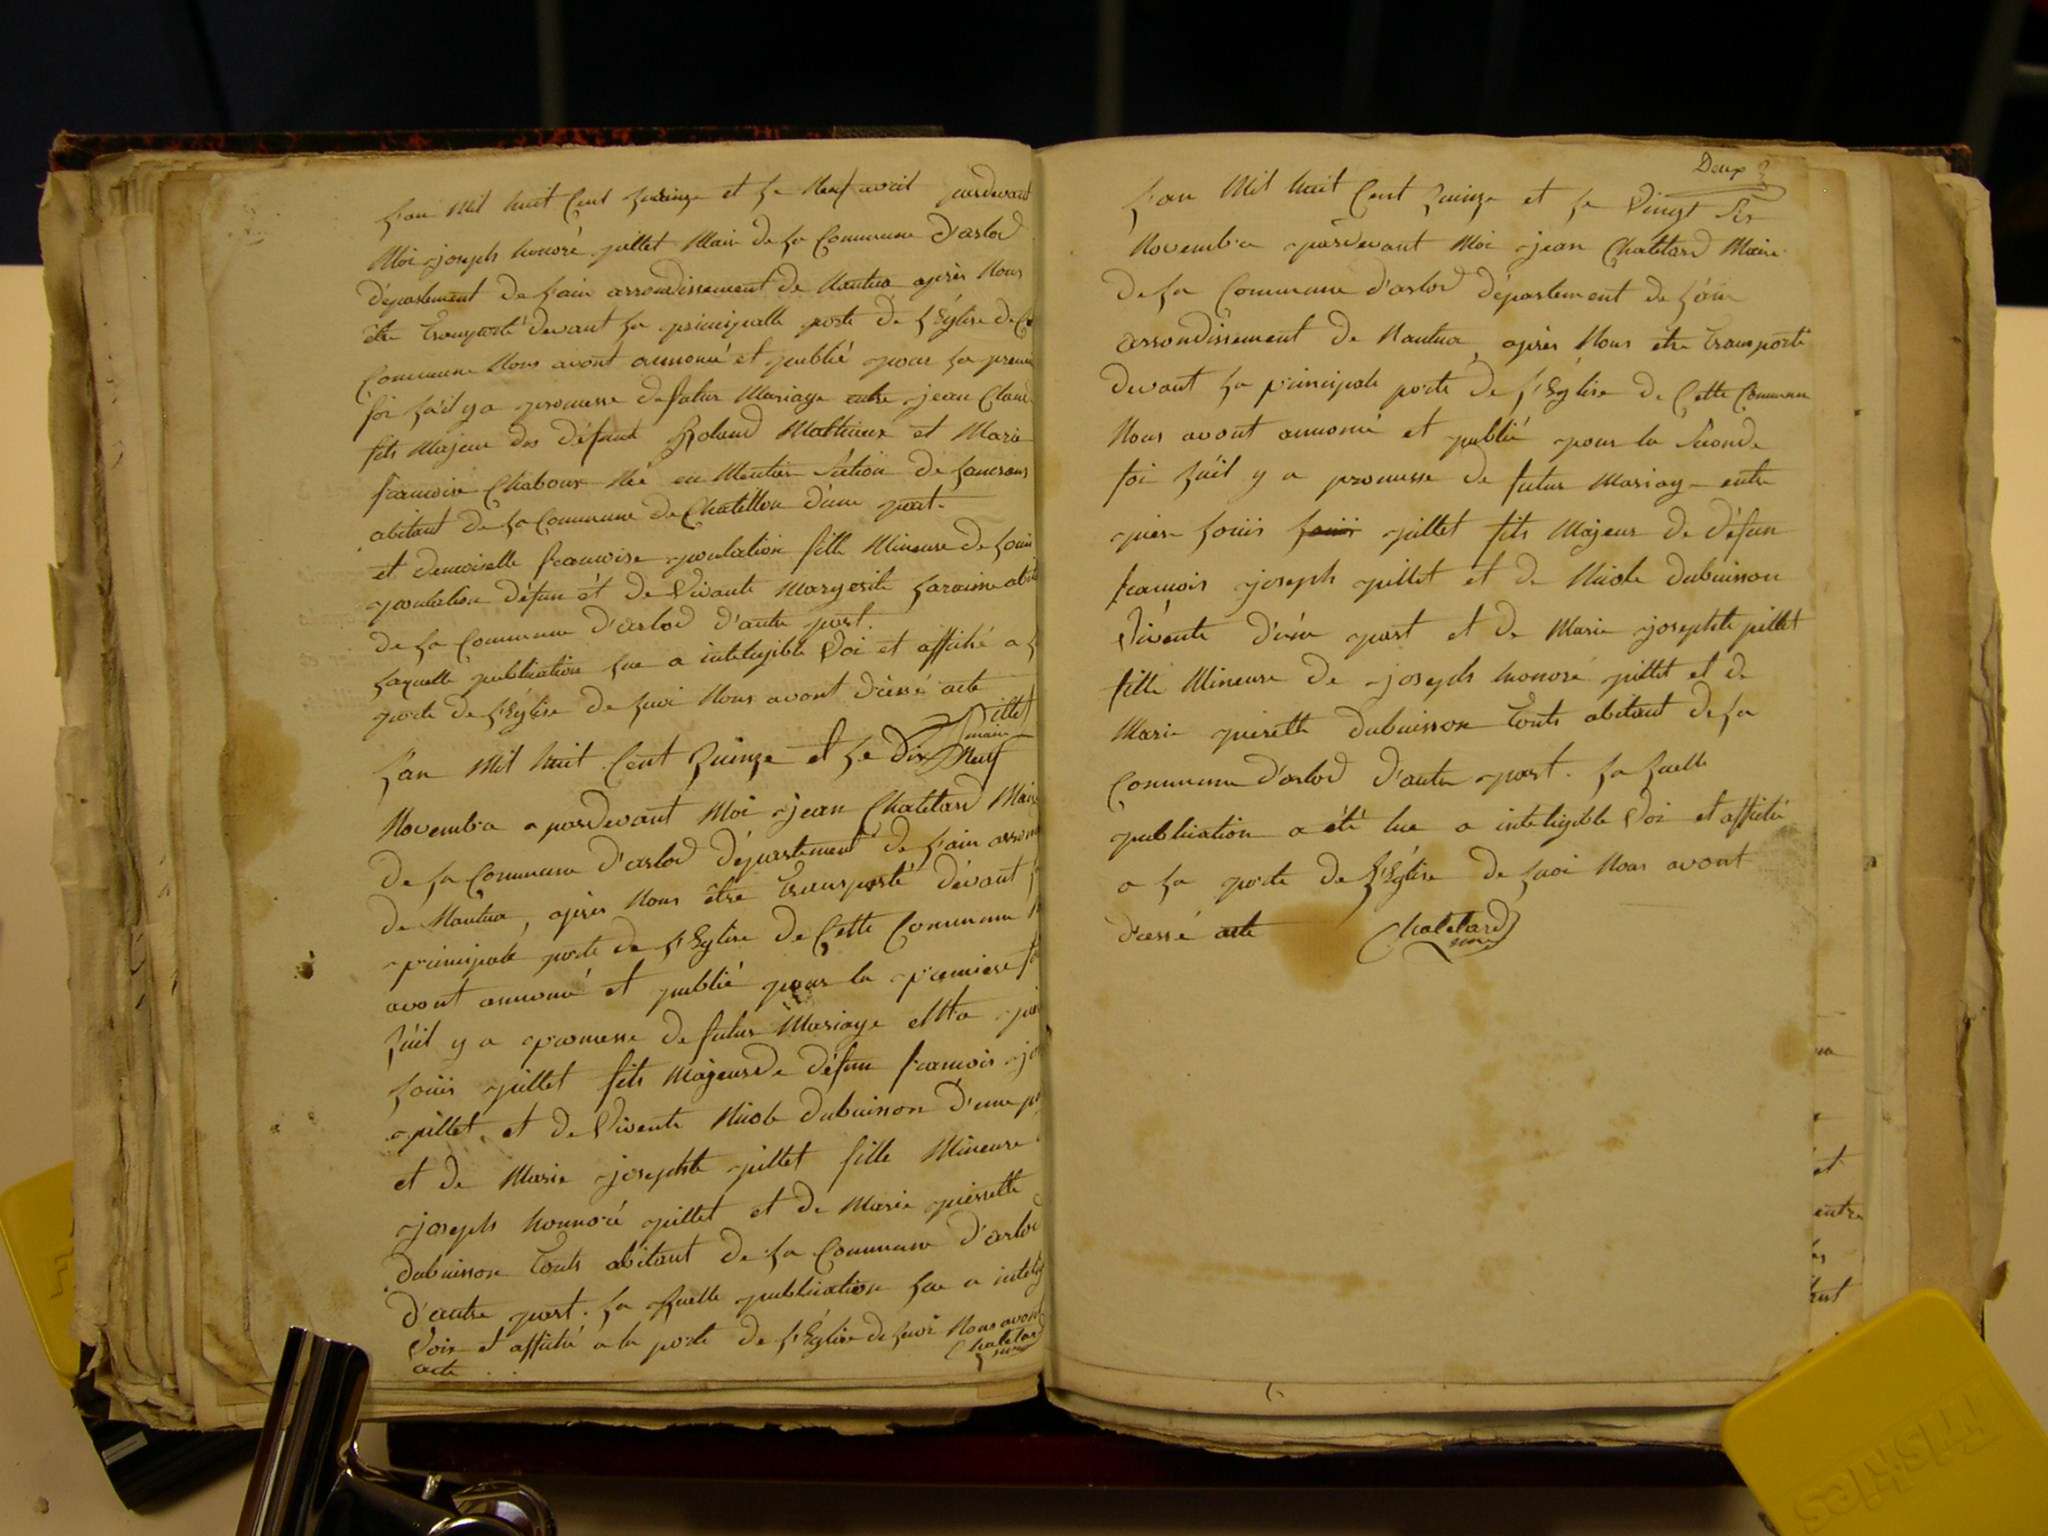 L'an Mil huit Cent Quinze et Le Neuf avril pardevant
Moi joseph honoré pillet Maire de La Commune d'arlod
département de L'ain arrondissement de Nantua après Nous
être transporté devant La principalle porte de L'Église de
Commune Nous avont annoncé et publié pour La premi
foi Qu'il y a promesse de futur Mariage entre jean Claud
fils Majeur des défunt Roland Mathieux et Marie
francoise Chaboux Né en Section de
abitant de La Commune de Chatillon d'une part.
et demoiselle francoise poulation fille Mineure de Louis
poulation défun et de Vivante Margerite abit
de La Commune d'arlod d'autre part.
Laquelle publication Lue a inteligible Voi et affiché a L
porte de L'Église de Quoi Nous avont dressé acte
Pillet
maire
L'an Mil huit Cent Quinze et Le Dix Neuf
Novembre pardevant Moi jean Chatelard Maire
de La Commune d'arlod département de L'ain arron
de Nantua, après Nous être transporté devant L
principale porte de L'Église de Cette Commune N
avont annoncé et publié pour la premiere fo
Qu'il y a promesse de futur Mariage entre pie
Loüis pillet fils Majeur de défun francois jo
pillet, et de Vivente Nicole dubuisson d'une p
et de Marie josephte pillet fille Mineure
joseph honnoré pillet et de Marie pierrette
dubuisson touts abitant de La Commune d'arlod
d'autre part. La Quelle publication Lue a intelig
Voix et affiché a la porte de L'Église de Quoi Nous avont
acte Chatelard
maire
Deux
L'an Mil huit Cent Quinze et Le Vingt Six
Novembre pardevant Moi jean Chatelard Maire
de La Commune d'arlod département de L'ain
arrondissement de Nantua, après Nous être transporté
devant La principale porte de L'Église de Cette Commune
Nous avont annoncé et publié pour la Seconde
foi Qu'il y a promesse de futur Mariage entre
pierre Loüis Loüis pillet fils Majeur de défun
francois joseph pillet et de Nicole dubuisson
Vivente d'une part et de Marie josephte pillet
fille Mineure de joseph honoré pillet et de
Marie pierette dubuisson touts abitant de La
Commune d'arlod d'autre part. La Quelle
publication a été lue a inteligible Voi et affiché
a La porte de L'Église de Quoi Nous avont
dressé acte Chatelard
maire
et
entre
Triskles